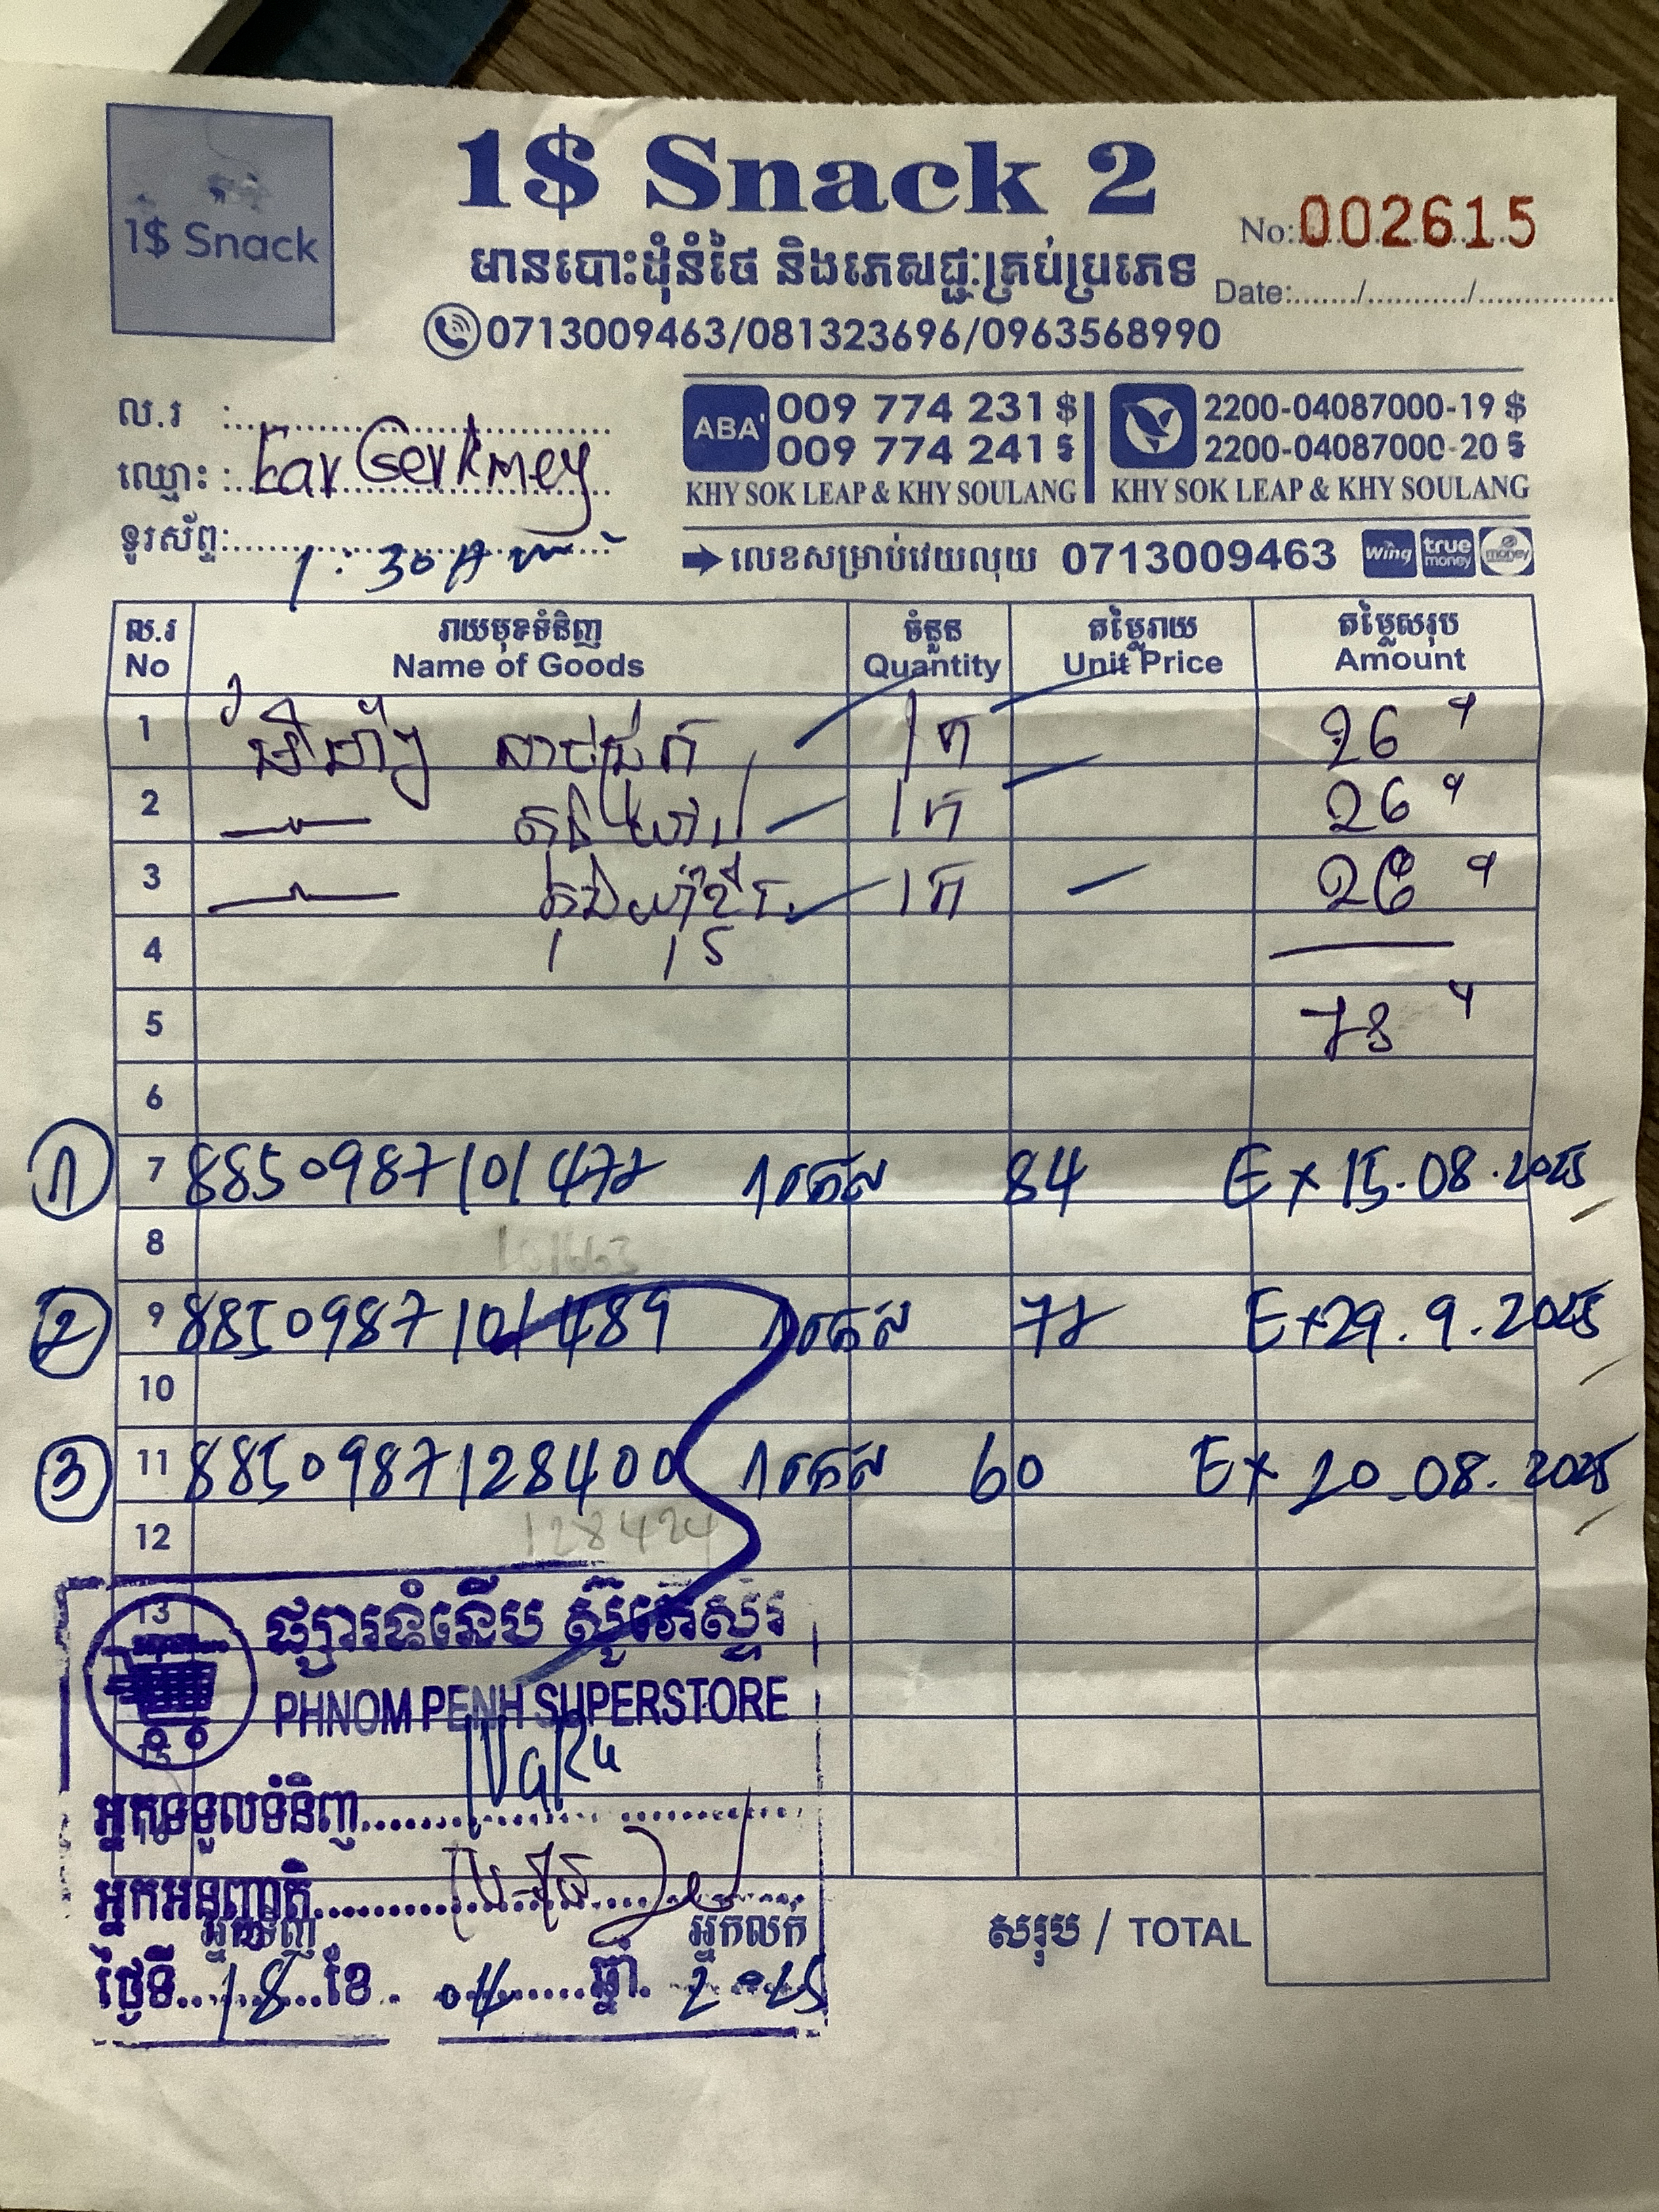 1$ Snack
1$ Snack 2
No: 002615
មានបោះដុំនំថៃ និងភេសជ្ជៈគ្រប់ប្រភេទ
Date:....../........../..............
0713009463/081323696/0963568990
ល.រ :
ABA' 009 774 231 $ 2200-04087000-19 $
009 774 241 ៛ 2200-04087000-20 ៛
ឈ្មោះ :
KHY SOK LEAP & KHY SOULANG KHY SOK LEAP & KHY SOULANG
ទូរស័ព្ទ: 1:30 Am
លេខសម្រាប់វេយលុយ 0713009463 Wing true money emoney
ល.រ រាយមុខទំនិញ ចំនួន តម្លៃរាយ តម្លៃសរុប
No Name of Goods Quantity Unit Price Amount
1 1កេ 26
2 1កេ 26
3 1កេ 26
4
5 78
6
1 7 8850987101477 1កេស 84 Ex 15.08.2025
8 101663
2 9 8850987101489 1កេស 77 Ex 29.9.2025
10
3 11 8850987128400 1កេស 60 Ex 20.08.2025
12 128424
13 ផ្សារទំនើប ស៊ូភើស្ទ័រ
PHNOM PENH SUPERSTORE
15
អ្នកទទួលទំនិញ
អ្នកអនុញ្ញាតិ
អ្នកទិញ អ្នកលក់
សរុប / TOTAL
ថ្ងៃទី 18 ខែ 04 ឆ្នាំ 2025